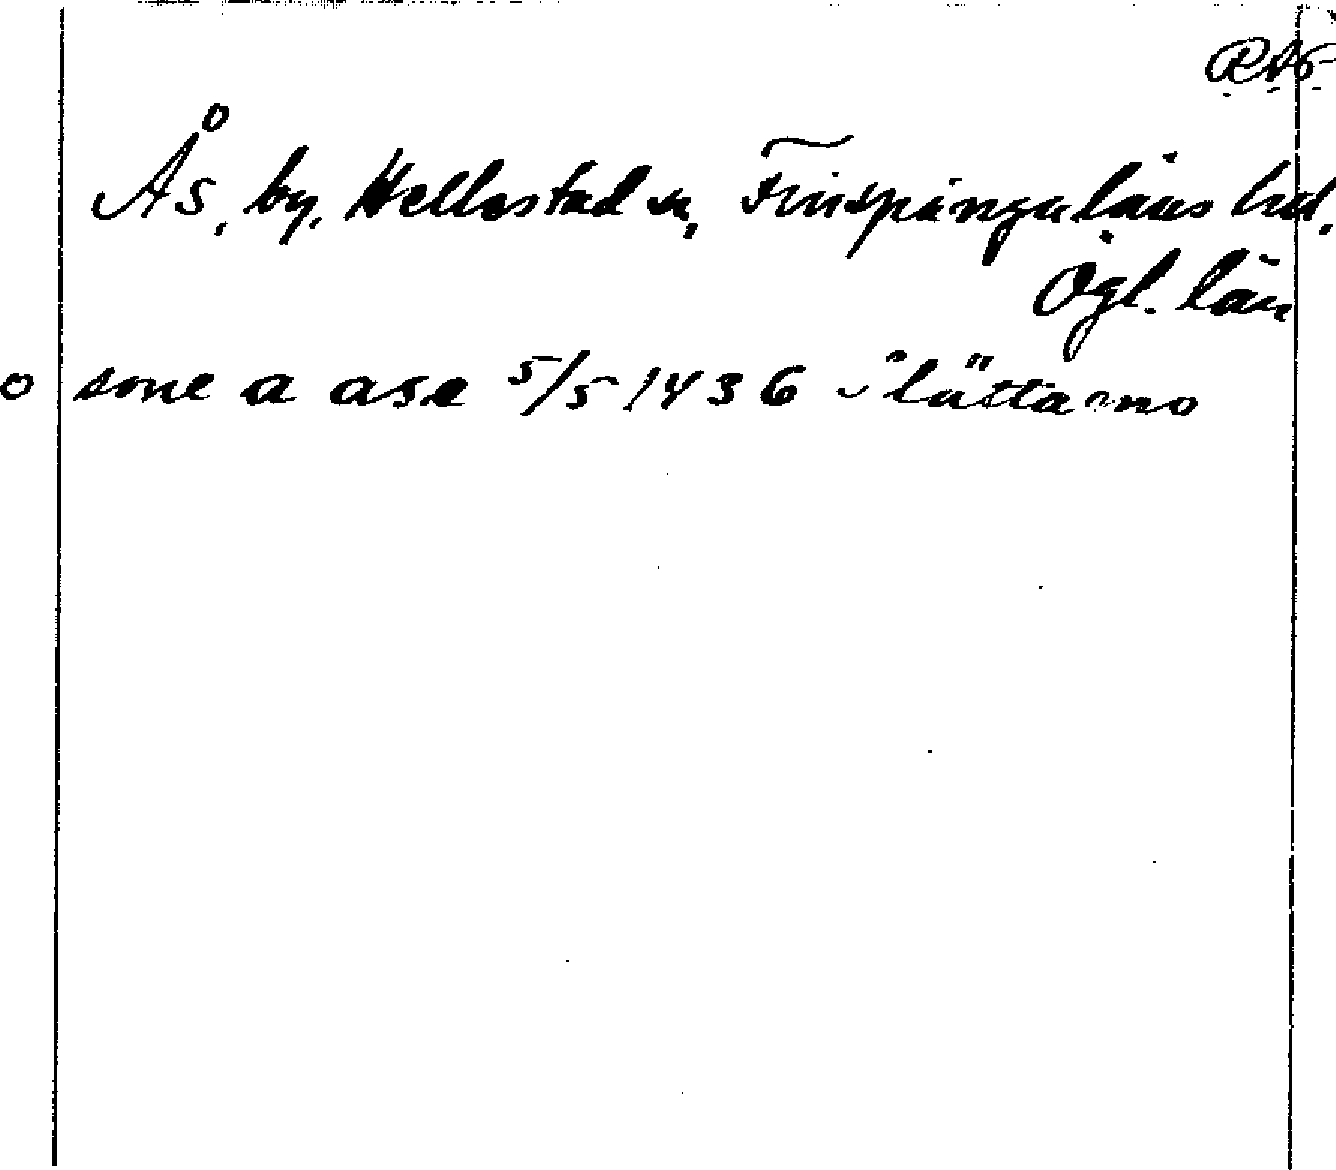 RAp
Ås, by, Hellestad sn, Finspångaläns hd,
Ögl. län
o sone a ase 5/5 1436 Slättamo